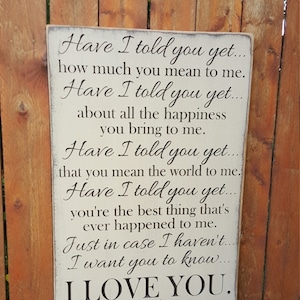 Have I told you yet...
how much you mean to me.
Have I told you yet...
about all the happiness
you bring to me.
Have I told you yet...
that you mean the world to me.
Have I told you yet...
you're the best thing that's
ever happened to me.
Just in case I haven't...
I want you to know...
I LOVE YOU.